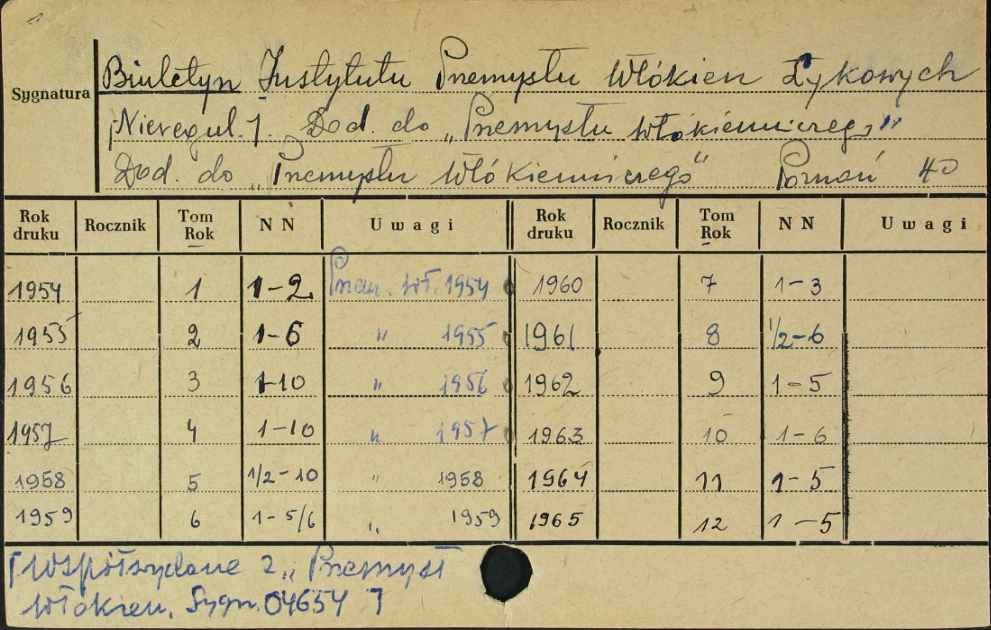 Sygnatura
Biuletyn Instytutu Przemysłu Włókien Łykowych
[Nieregul.]. Dod. do „Przemysłu Włókienniczego"
Dod. do „Przemysłu Włókienniczego" Poznań 4D
Rok druku Rocznik Tom Rok NN Uwagi Rok druku Rocznik Tom Rok NN Uwagi
1954 1 1-2 Przem. Wł. 1954 1960 7 1-3
1955 2 1-6 " 1955 1961 8 1/2-6
1956 3 1-10 " 1956 1962 9 1-5
1957 4 1-10 " 1957 1963 10 1-6
1958 5 1/2-10 " 1958 1964 11 1-5
1959 6 1-5/6 " 1959 1965 12 1-5
[Współwydane z „Przemysł
Włókien. Sygn. 04654]